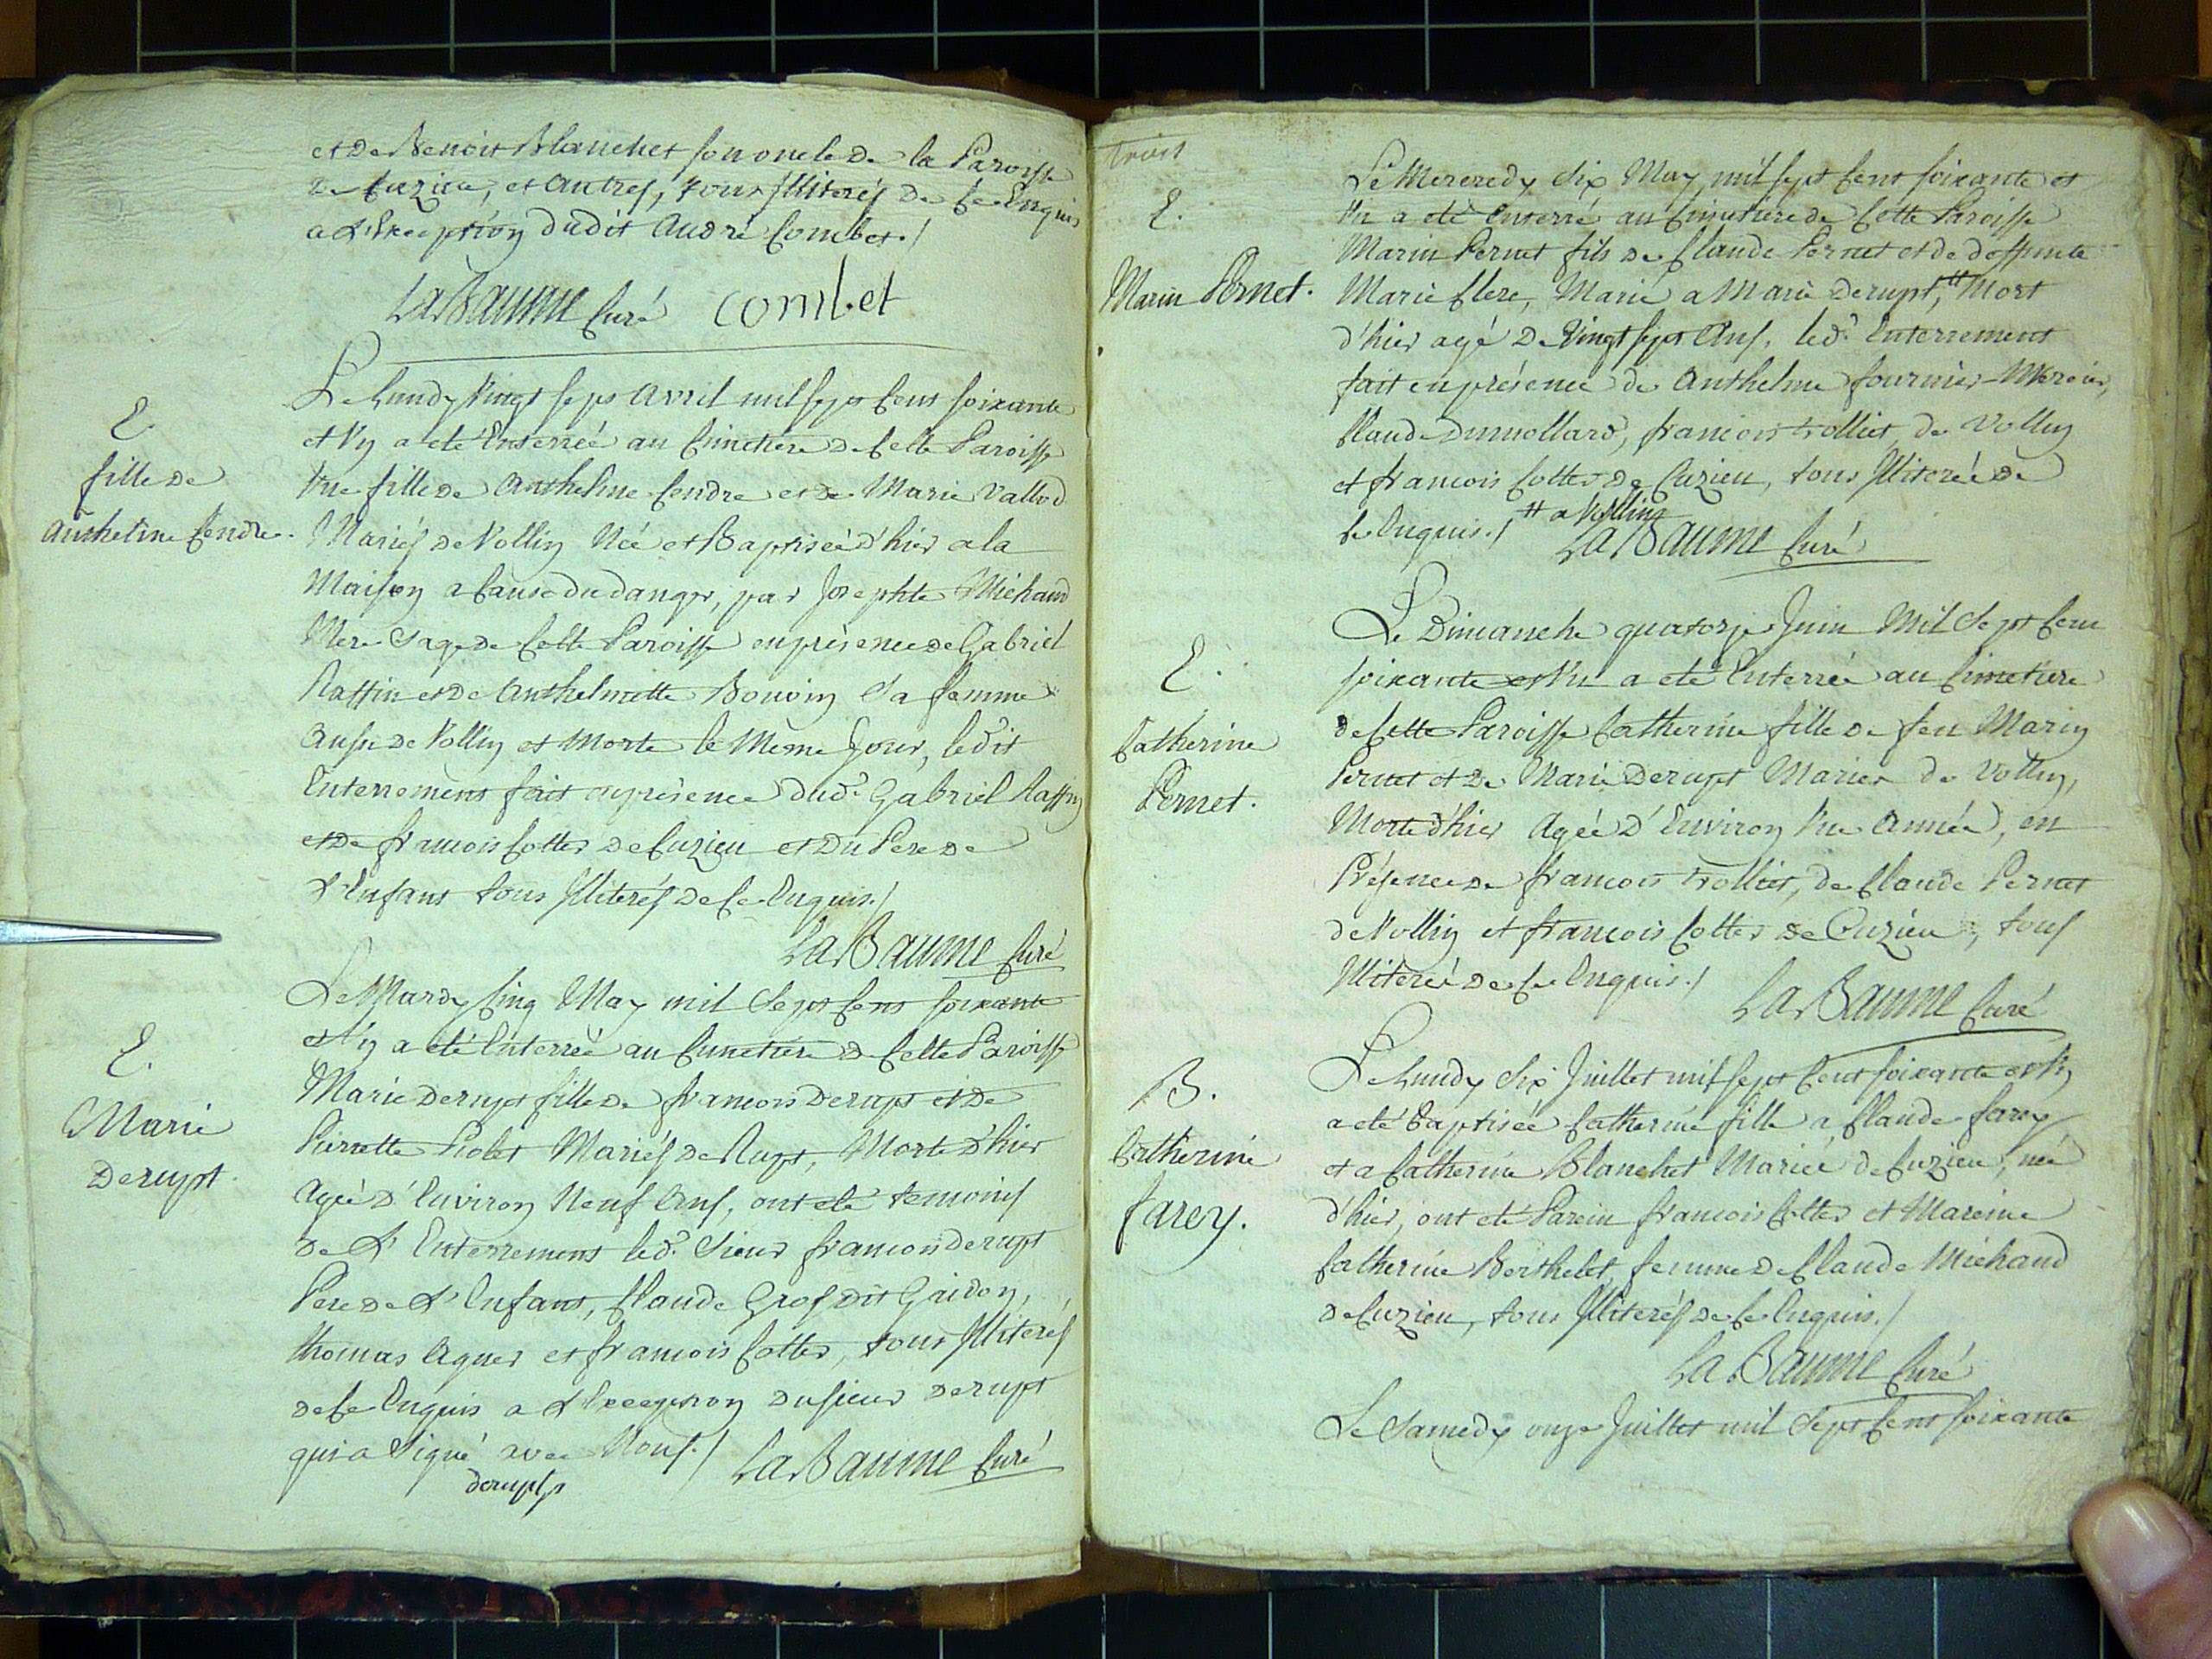 et de Benoit Blanchet son oncle de la Paroisse
de Cuzieu, et autres, tous Illiterés de ce Enquis
a L'Exception dudit André Combet./
La Baume Curé combet
Le Lundy vingt sept avril mil sept cent soixante
et Un a eté Enterrée au Cimetiere de Cette Paroisse
E.
fille de
Anthelme Cendre.
Une fille de Anthelme Cendre et de Marie Vallod
Mariés de Vollin Née et Baptisée d'hier a la
Maison a Cause du danger, par Josephte Michaud
Mere Sage de Cette Paroisse en présence de Gabriel
Raffin et de Anthelmette Bouvin Sa femme
Aussi de Vollin et Morte le Meme Jour, ledit
Enterrement fait en présence dud.t Gabriel Raffin
et de francois Cotter de Cuzieu et Du Pere de
L'Enfant tous Illiterés de ce Enquis./
La Baume Curé
Le Mardy Cinq May mil Sept Cent soixante
et Un a eté Enterrée au Cimetiere de Cette Paroisse
E.
Marie
Derupt.
Marie Derupt fille de francois Derupt et de
Pierrette Piolet Mariés de Rupt, Morte d'hier
Agée d'Environ Neuf Ans, ont eté temoins
de L'Enterrement led.t Sieur francois derupt
Pere de L'Enfant, Claude Gros dit Guidon,
thomas Aguer et francois Cotter, tous Illiterés
de ce Enquis a L'Exception du sieur Derupt
qui a Signé avec Nous./ La Baume Curé
derupt
Trois
Le Mercredy Six May mil sept Cent soixante et
E.
Un a eté Enterré au Cimetiere de Cette Paroisse
Marin Pernet fils de Claude Pernet et de deffunte
Marin Pernet.
Marie Clere, Marié a Marie Derupt, # Mort
d'hier agé de Vingt sept Ans, led.t Enterrement
fait en présence de Anthelme fournier-Mercier,
Claude Dumollard, francois trolliet de Vollin
et francois Cotter de Cuzieu, tous Illiterés de
ce Enquis./ # a Vollin
La Baume Curé
Le Dimanche quatorze Juin Mil Sept Cent
E.
Catherine
Pernet.
soixante et Un a eté Enterrée au Cimetiere
de Cette Paroisse Catherine fille de feu Marin
Pernet et de Marie Derupt Mariés de Vollin,
Morte d'hier Agée d'Environ Une Année, en
Présence de francois trolliet, de Claude Pernet
de Vollin et francois Cotter de Cuzieu, tous
Illiterés de ce Enquis./
La Baume Curé
Le Lundy Six Juillet mil sept Cent soixante et Un
B.
Catherine
farey.
a eté Baptisée Catherine fille a Claude farey
et a Catherine Blanchet Mariés de Cuzieu, née
d'hier, ont eté Parein francois Cotter et Mareine
Catherine Berthelet femme de Claude Michaud
de Cuzieu, tous Illiterés de ce Enquis./
La Baume Curé
Le Samedy onze Juillet mil Sept Cent soixante